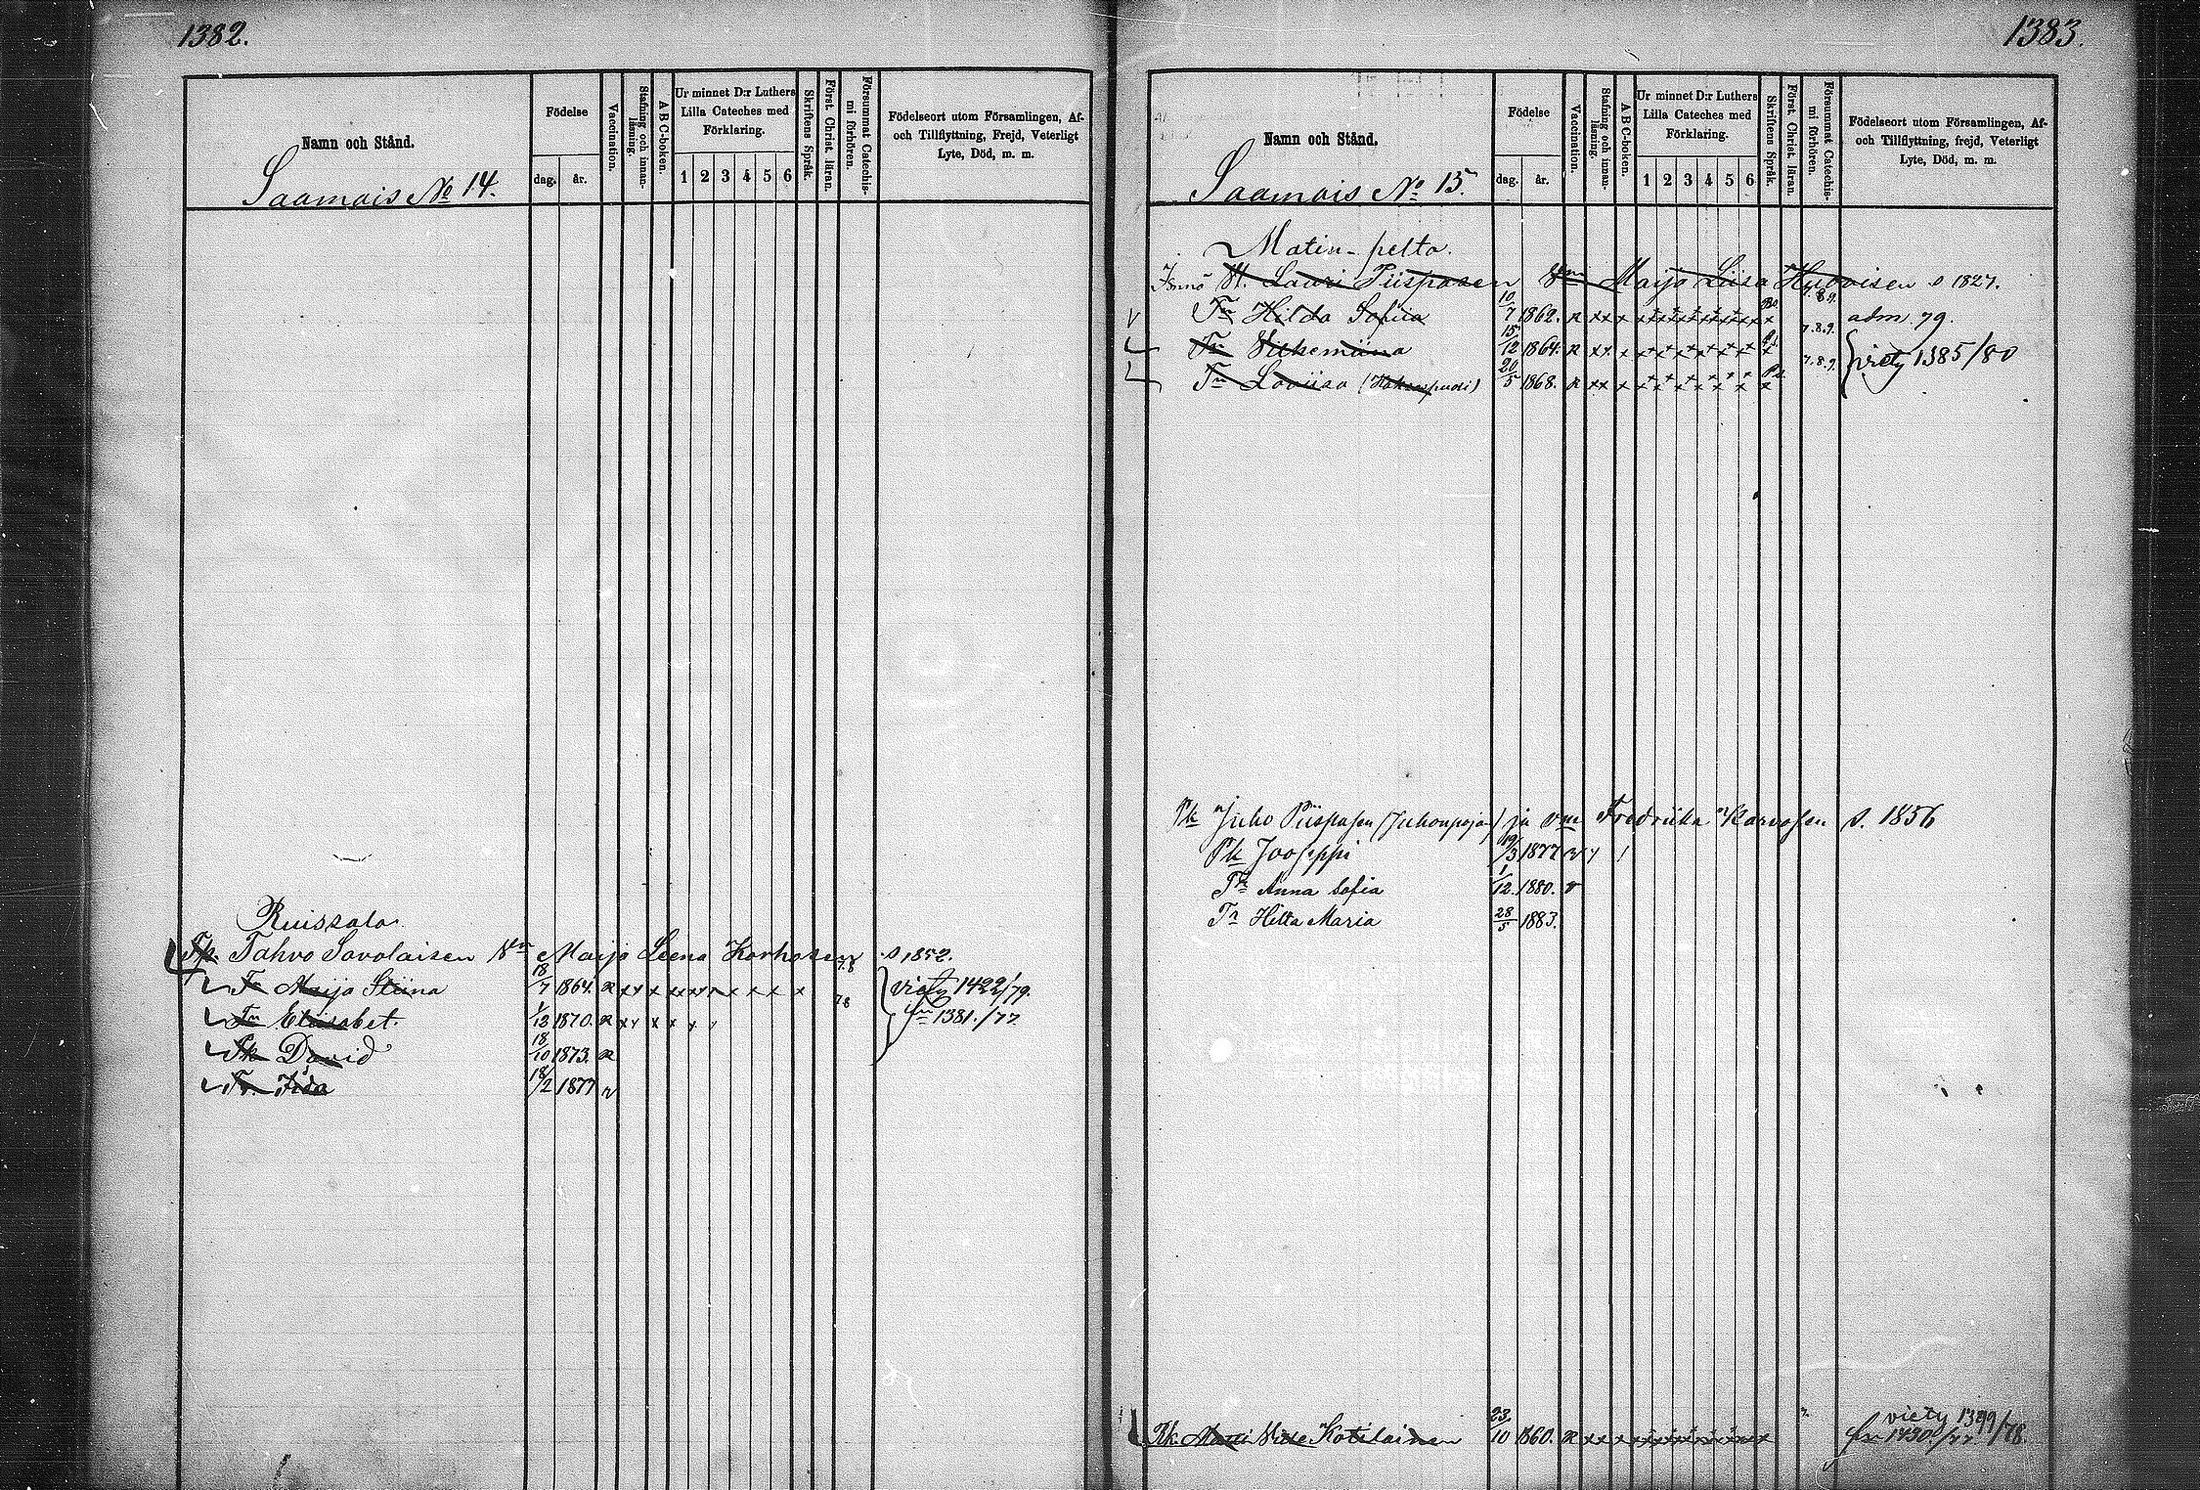 1382.
Namn och Stånd.
Födelse
dag. år.
Vaccination.
Stafning och innan-läsning.
A B C-boken.
Ur minnet D:r Luthers
Lilla Cateches med
Förklaring.
1 2 3 4 5 6
Skriftens Språk.
Först. Christ. läran.
Försummat Catechis-mi förhören.
Födelseort utom Församlingen, Af-
och Tillflyttning, Frejd, Veterligt
Lyte, Död, m. m.
Saamais No 14.
Ruissalo.
Tahvo Savolaisen Maija Leena Korhosen 7.8 s 1852.
Tr Maija Stiina 18/7 1864. viety 1422/79.
Tr Elisabet. 1/12 1870. 78 1381./77.
Pk David 18/10 1873.
Tr. Fida 18/2 1877
1383.
Namn och Stånd.
Födelse
dag. år.
Vaccination.
Stafning och innan-läsning.
A B C-boken.
Ur minnet D:r Luthers
Lilla Cateches med
Förklaring.
1 2 3 4 5 6
Skriftens Språk.
Först. Christ. läran.
Försummat Catechis-mi förhören.
Födelseort utom Församlingen, Af-
och Tillflyttning, frejd, Veterligt
Lyte, Död, m. m.
Saamais No 15.
Matin-pelto.
Lauri Piispasen Maija Liisa s 1827.
Tr Hilda Sofiia 10/7 1862. adm. 79.
Tr Vilhemiina 15/12 1864. 7.8.9. viety 1385/80
Tr Loviisa 20/5 1868. 7.8.9.
Pk Juho Piispasen (Juhonpojan) ja vm Fredriika Karvosen s. 1856
Pk Jooseppi 19/3 1877
Tr Anna Sofia 1/12 1880.
Tr Hilta Maria 28/5 1883.
Rk. Matti Kotilainen 23/10 1860. viety 1399/78
1430./77.